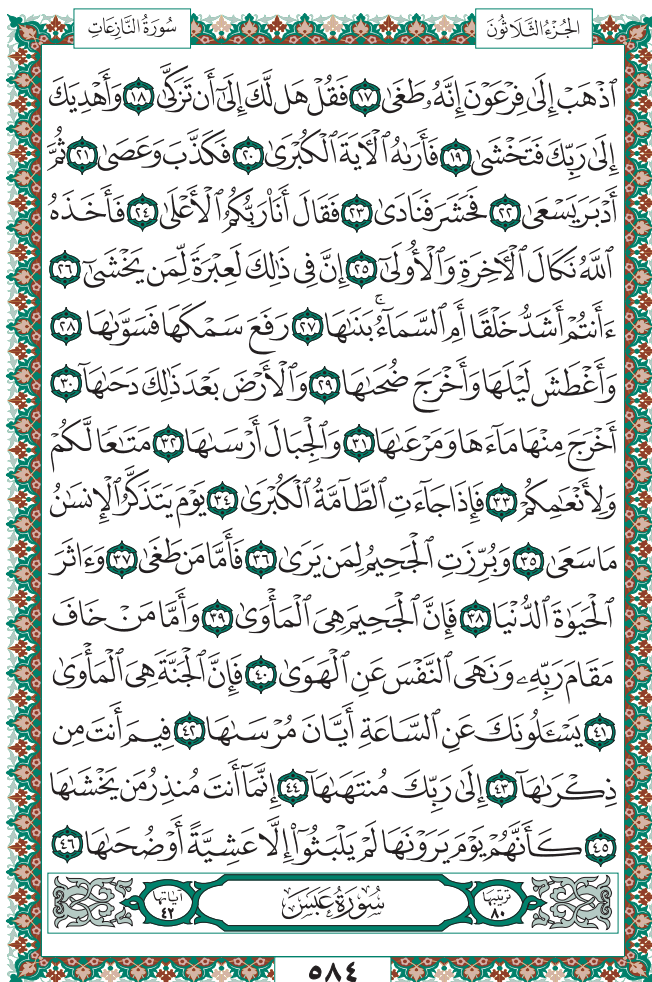 الجُزْءُ الثَّلَاثُونَ
سُورَةُ النَّازِعَاتِ
ٱذْهَبْ إِلَىٰ فِرْعَوْنَ إِنَّهُۥ طَغَىٰ ١٧ فَقُلْ هَل لَّكَ إِلَىٰٓ أَن تَزَكَّىٰ ١٨ وَأَهْدِيَكَ
إِلَىٰ رَبِّكَ فَتَخْشَىٰ ١٩ فَأَرَىٰهُ ٱلْأٓيَةَ ٱلْكُبْرَىٰ ٢٠ فَكَذَّبَ وَعَصَىٰ ٢١ ثُمَّ
أَدْبَرَ يَسْعَىٰ ٢٢ فَحَشَرَ فَنَادَىٰ ٢٣ فَقَالَ أَنَا۠ رَبُّكُمُ ٱلْأَعْلَىٰ ٢٤ فَأَخَذَهُ
ٱللَّهُ نَكَالَ ٱلْأٓخِرَةِ وَٱلْأُولَىٰٓ ٢٥ إِنَّ فِى ذَٰلِكَ لَعِبْرَةً لِّمَن يَخْشَىٰٓ ٢٦
ءَأَنتُمْ أَشَدُّ خَلْقًا أَمِ ٱلسَّمَآءُ ۚ بَنَىٰهَا ٢٧ رَفَعَ سَمْكَهَا فَسَوَّىٰهَا ٢٨
وَأَغْطَشَ لَيْلَهَا وَأَخْرَجَ ضُحَىٰهَا ٢٩ وَٱلْأَرْضَ بَعْدَ ذَٰلِكَ دَحَىٰهَآ ٣٠
أَخْرَجَ مِنْهَا مَآءَهَا وَمَرْعَىٰهَا ٣١ وَٱلْجِبَالَ أَرْسَىٰهَا ٣٢ مَتَٰعًا لَّكُمْ
وَلِأَنْعَٰمِكُمْ ٣٣ فَإِذَا جَآءَتِ ٱلطَّآمَّةُ ٱلْكُبْرَىٰ ٣٤ يَوْمَ يَتَذَكَّرُ ٱلْإِنسَٰنُ
مَا سَعَىٰ ٣٥ وَبُرِّزَتِ ٱلْجَحِيمُ لِمَن يَرَىٰ ٣٦ فَأَمَّا مَن طَغَىٰ ٣٧ وَءَاثَرَ
ٱلْحَيَوٰةَ ٱلدُّنْيَا ٣٨ فَإِنَّ ٱلْجَحِيمَ هِىَ ٱلْمَأْوَىٰ ٣٩ وَأَمَّا مَنْ خَافَ
مَقَامَ رَبِّهِۦ وَنَهَى ٱلنَّفْسَ عَنِ ٱلْهَوَىٰ ٤٠ فَإِنَّ ٱلْجَنَّةَ هِىَ ٱلْمَأْوَىٰ
٤١ يَسْـَٔلُونَكَ عَنِ ٱلسَّاعَةِ أَيَّانَ مُرْسَىٰهَا ٤٢ فِيمَ أَنتَ مِن
ذِكْرَىٰهَآ ٤٣ إِلَىٰ رَبِّكَ مُنتَهَىٰهَآ ٤٤ إِنَّمَآ أَنتَ مُنذِرُ مَن يَخْشَىٰهَا
٤٥ كَأَنَّهُمْ يَوْمَ يَرَوْنَهَا لَمْ يَلْبَثُوٓا۟ إِلَّا عَشِيَّةً أَوْ ضُحَىٰهَا ٤٦
تَرْتِيبُهَا ٨٠ سُورَةُ عَبَسَ آيَاتُهَا ٤٢
٥٨٤